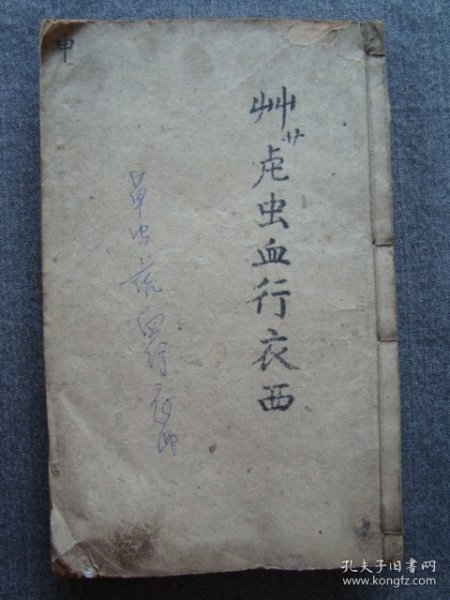 申
艸艹虍虫血行衣襾
草虫虎血行衣西
孔夫子旧书网
www.kongfz.com